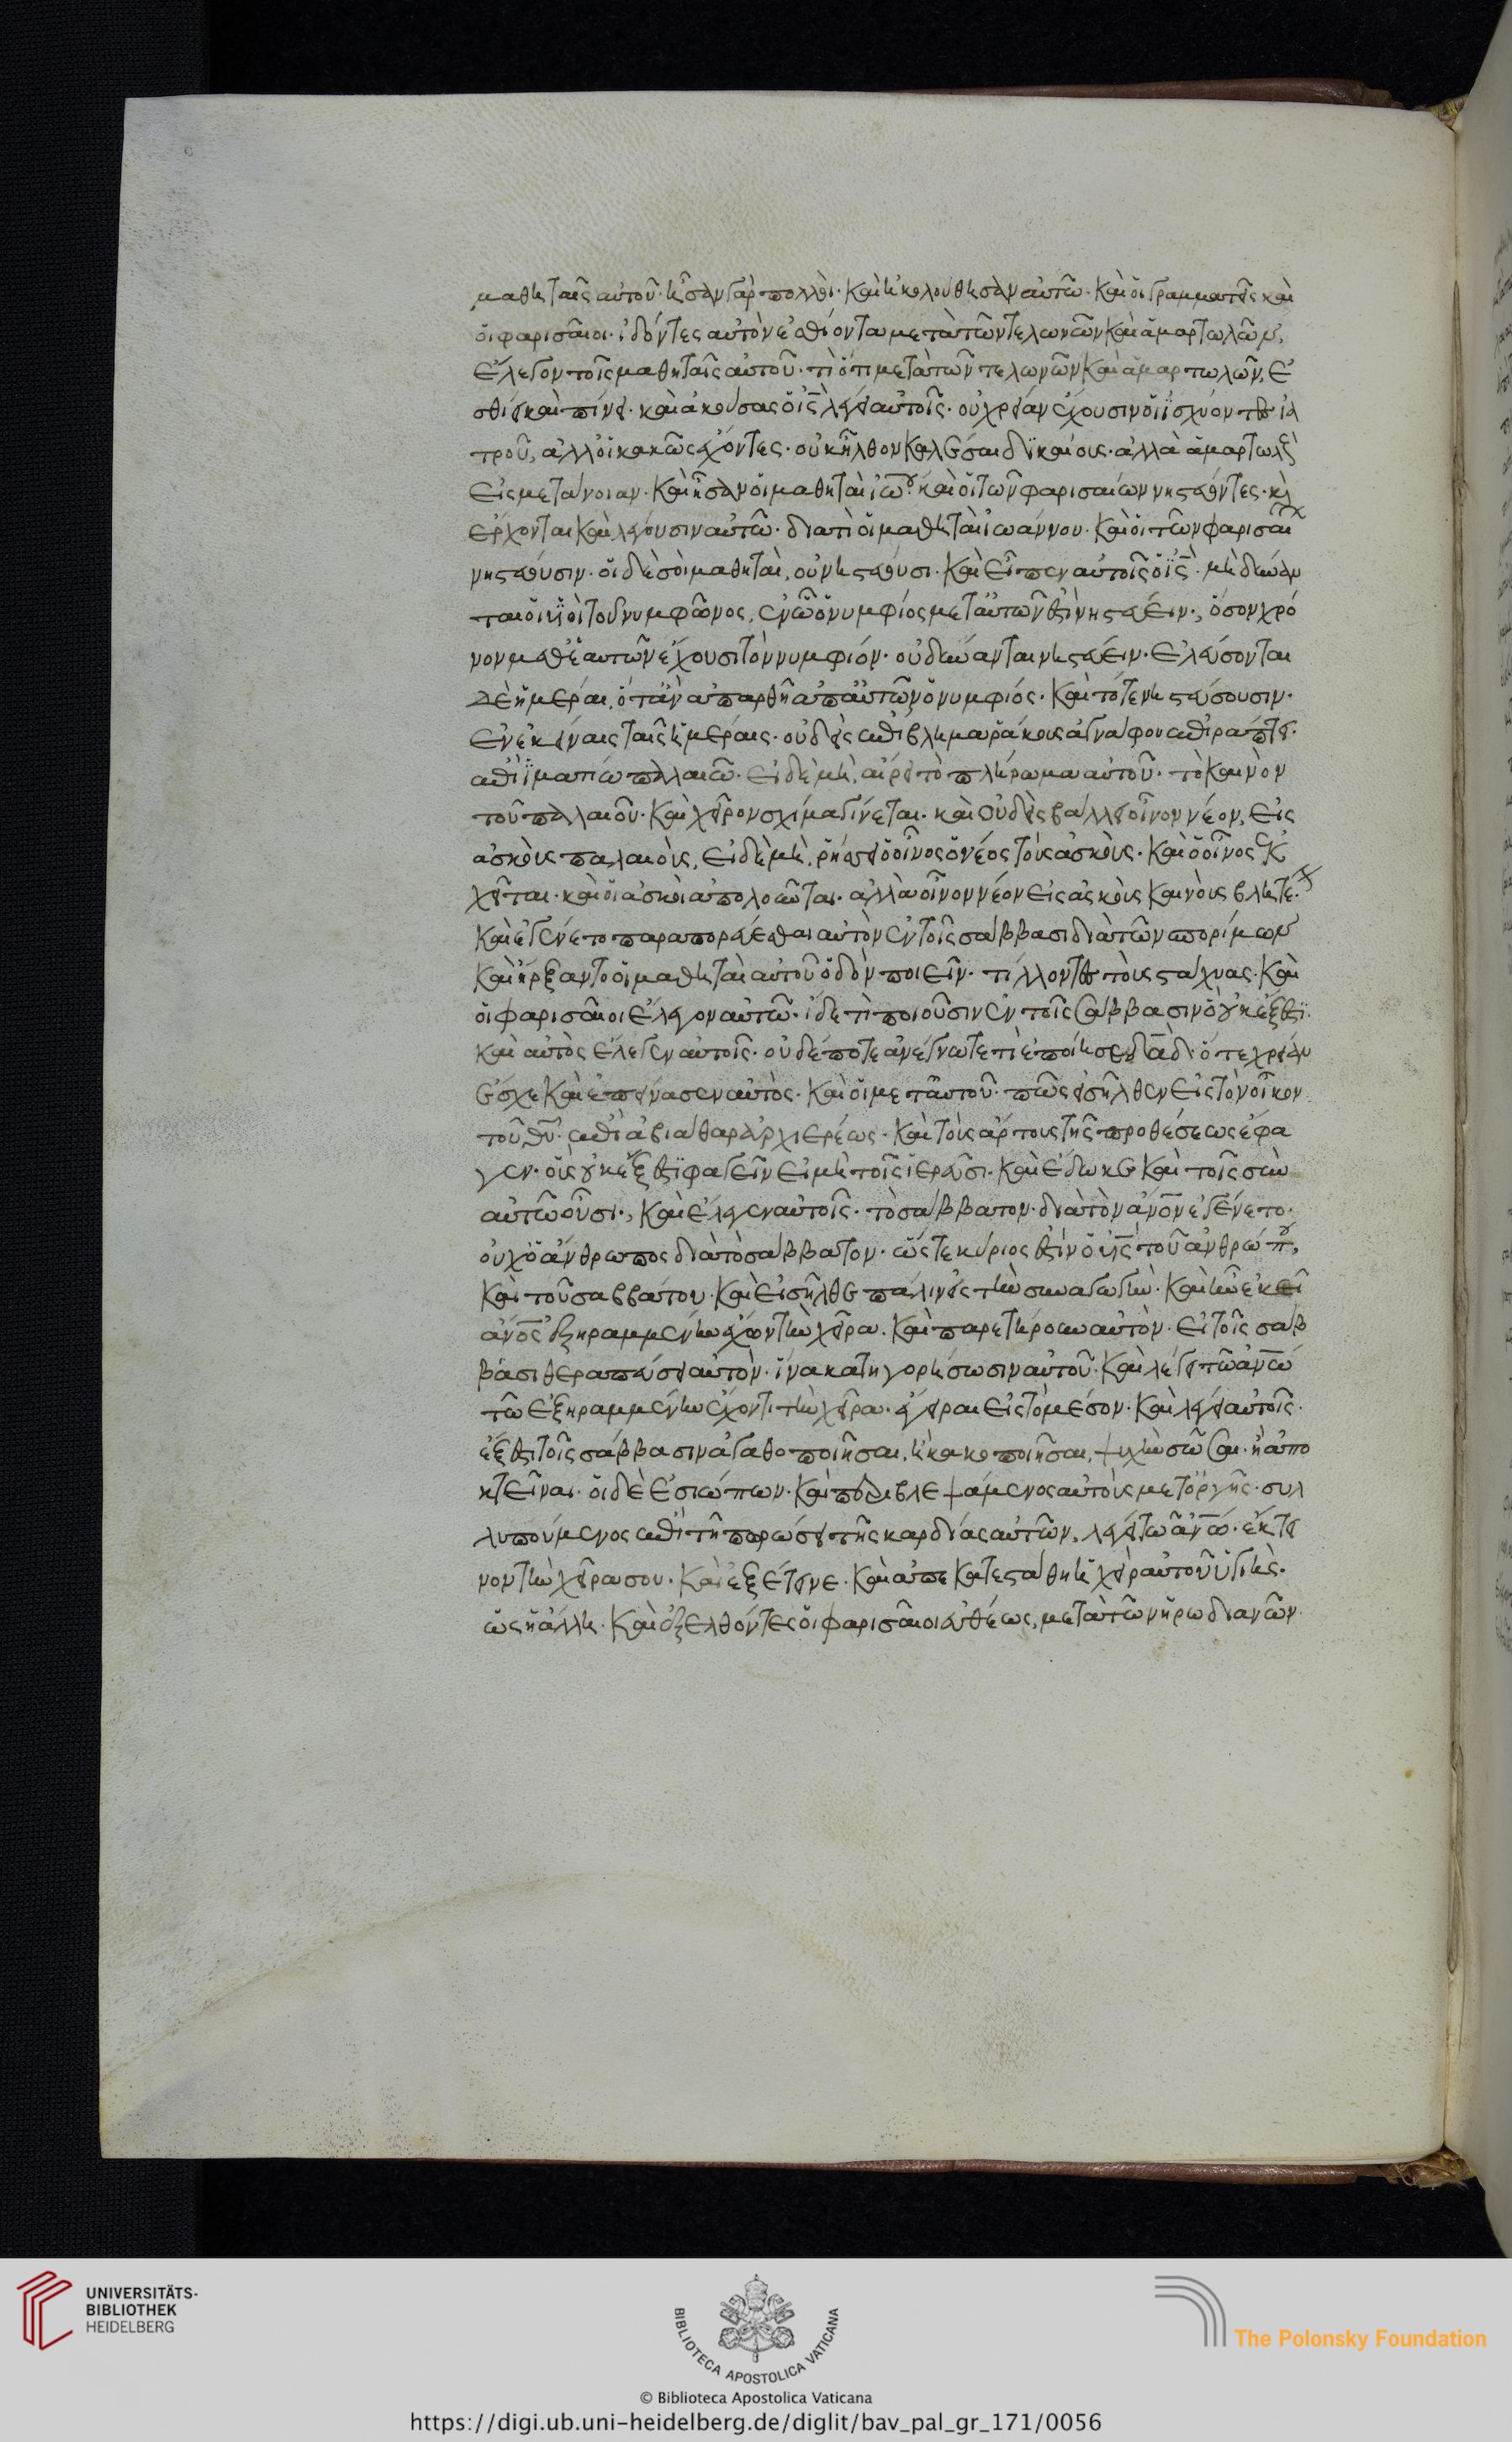 μαθηταῖς αὐτοῦ· ἦσαν γὰρ πολλοὶ· καὶ ἠκολούθησαν αὐτῶ· καὶ οἱ γραμματεῖς καὶ
οἱ φαρισαῖοι· ἰδόντες αὐτὸν ἐσθίοντα μετὰ τῶν τελωνῶν καὶ ἁμαρτωλῶν,
ἔλεγον τοῖς μαθηταῖς αὐτοῦ· τὶ ὅτι μετὰ τῶν τελωνῶν καὶ ἁμαρτωλῶν, ἐ
σθίει καὶ πίνει· καὶ ἀκούσας ὁ ις λέγει αὐτοῖς· οὐ χρείαν ἔχουσιν οἱ ἰσχύοντες ἰα
τροῦ, ἀλλ' οἱ κακῶς ἔχοντες· οὐκ ἦλθον καλέσαι δικαίους· ἀλλὰ ἁμαρτωλοὺς
εἰς μετάνοιαν· καὶ ἦσαν οἱ μαθηταὶ ἰωου καὶ οἱ τῶν φαρισαίων νηστεύοντες· καὶ
ἔρχονται καὶ λέγουσιν αὐτῶ· διατὶ οἱ μαθηταὶ ἰωάννου· καὶ οἱ τῶν φαρισαί
νηστεύουσιν· οἱ δὲ σὸι μαθηταὶ, οὐ νηστεύουσι· καὶ εἶπεν αὐτοῖς ὁ ις· μὴ δύναν
ται οἱ υἱοὶ τοῦ νυμφῶνος, ἐν ὧ ὁ νυμφίος μετ' αὐτῶν ἐστὶ νηστεύειν·, ὅσον χρό
νον μεθ' ἑαυτῶν ἔχουσι τὸν νυμφίον· οὐ δύνανται νηστεύειν· ἐλεύσονται
δὲ ἡμέραι, ὅταν ἀπαρθῆ ἀπ' αὐτῶν ὁ νυμφίος· καὶ τότε νηστεύσουσιν·
ἐν ἐκείναις ταῖς ἡμέραις· οὐδεὶς ἐπίβλημα ῥάκους ἀγνάφου ἐπιράπτει·
ἐπὶ ἱματίω παλαιῶ· εἰ δὲ μὴ, αἴρει τὸ πλήρωμα αὐτοῦ· τὸ καινὸν
τοῦ παλαιοῦ· καὶ χεῖρον σχίμα γίνεται· καὶ οὐδεὶς βάλλει οἶνον νέον, εἰς
ἀσκοὺς παλαιοὺς, εἰ δὲ μὴ, ῥήσσει ὁ οἶνος ὁ νέος τοὺς ἀσκοὺς· καὶ ὁ οἶνος ἐκ
χεῖται· καὶ οἱ ἀσκοὶ ἀπολοῦνται· ἀλλὰ οἶνον νέον εἰς ἀσκοὺς καινοὺς βλητέον·
καὶ ἐγένετο παραπορεύεσθαι αὐτὸν ἐν τοῖς σάββασι διὰ τῶν σπορίμων
καὶ ἤρξαντο οἱ μαθηταὶ αὐτοῦ ὁδὸν ποιεῖν· τίλλοντες τοὺς στάχυας· καὶ
οἱ φαρισαῖοι ἔλεγον αὐτῶ· ἴδε τὶ ποιοῦσιν ἐν τοῖς σάββασιν ὃ οὐκ ἔξεστι·
καὶ αὐτὸς ἔλεγεν αὐτοῖς· οὐδέποτε ἀνέγνωτε τὶ ἐποίησε δαδ ὅτε χρείαν
ἔσχε καὶ ἐπείνασεν αὐτὸς· καὶ οἱ μετ' αὐτοῦ· πῶς εἰσῆλθεν εἰς τὸν οἶκον
τοῦ θυ· ἐπὶ ἀβιάθαρ ἀρχιερέως· καὶ τοὺς ἄρτους τῆς προθέσεως ἔφα
γεν· οἷς οὐκ ἔξεστι φαγεῖν εἰ μὴ τοῖς ἱερεῦσι· καὶ ἔδωκε καὶ τοῖς σὺν
αὐτῶ οὖσι·, καὶ ἔλεγεν αὐτοῖς· τὸ σάββατον· διὰ τὸν ανον ἐγένετο·
οὐχ ὁ ἄνθρωπος διὰ τὸ σάββατον· ὥστε κύριος ἐστὶν ὁ υις τοῦ ἀνθρώπου,
καὶ τοῦ σαββάτου· καὶ εἰσῆλθε πάλιν εἰς τὴν συναγωγὴν· καὶ ἦν ἐκεῖ
ανος ἐξηραμμένην ἔχων τὴν χεῖρα· καὶ παρετήρουν αὐτὸν· εἰ τοῖς σάβ
βασι θεραπεύσει αὐτὸν· ἵνα κατηγορήσωσιν αὐτοῦ· καὶ λέγει τῶ ανω
τῶ ἐξηραμμένην ἔχοντι τὴν χεῖρα· ἔγειραι εἰς τὸ μέσον· καὶ λέγει αὐτοῖς·
ἔξεστι τοῖς σάββασιν ἀγαθοποιῆσαι, ἢ κακοποιῆσαι, ψυχὴν σῶσαι· ἢ ἀπο
κτεῖναι· οἱ δὲ ἐσιώπων· καὶ περιβλεψάμενος αὐτοὺς μετ' ὀργῆς· συλ
λυπούμενος ἐπὶ τῆ πωρώσει τῆς καρδίας αὐτῶν, λέγει τῶ ανω· ἔκτει
νον τὴν χεῖρα σου· καὶ ἐξέτεινε· καὶ ἀπεκατεστάθη ἡ χεὶρ αὐτοῦ ὑγιὴς·
ὡς ἡ ἄλλη· καὶ ἐξελθόντες οἱ φαρισαῖοι εὐθέως, μετὰ τῶν ἡρωδιανῶν
UNIVERSITÄTS-
BIBLIOTHEK
HEIDELBERG
BIBLIOTECA APOSTOLICA VATICANA
© Biblioteca Apostolica Vaticana
The Polonsky Foundation
https://digi.ub.uni-heidelberg.de/diglit/bav_pal_gr_171/0056